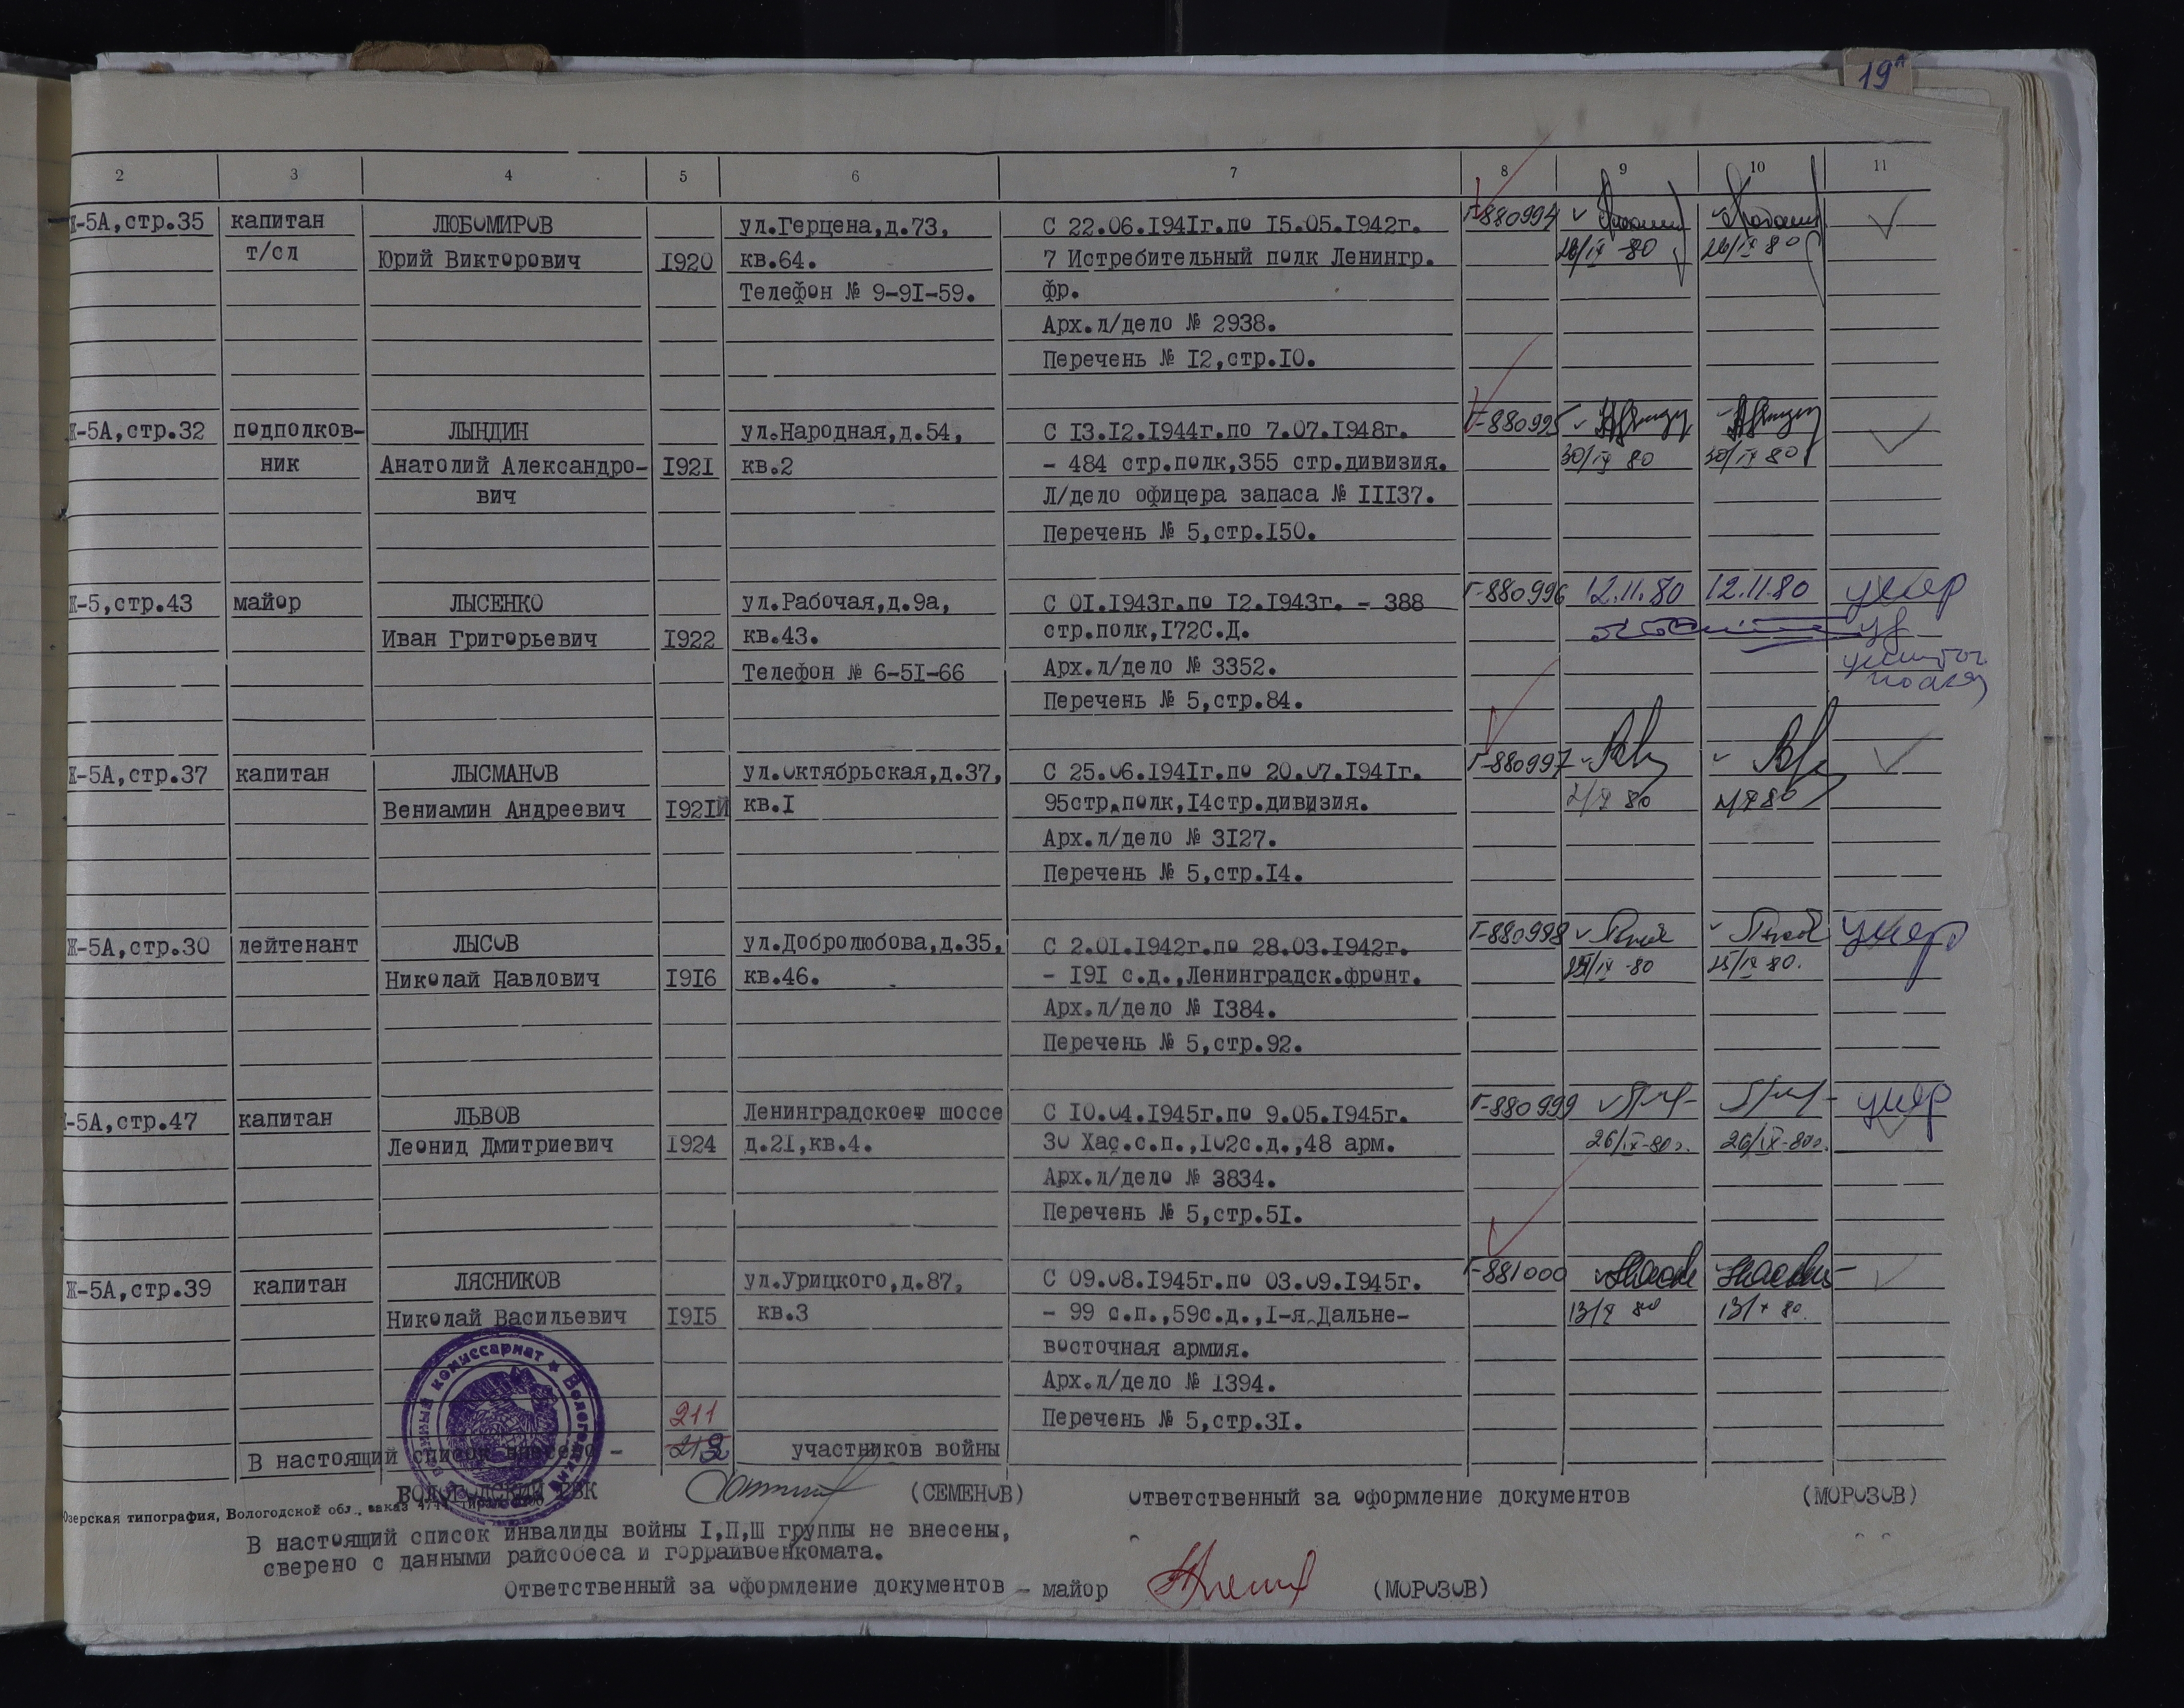 19
2 3 4 5 6 7 8 9 10 11
Ж-5А,стр.35 капитан ЛЮБОМИРОВ ул.Герцена,д.73, С 22.06.1941г.по 15.05.1942г. Г-880994
т/сл Юрий Викторович 1920 кв.64. 7 Истребительный полк Ленингр. 26/IX-80 26/IX 80
Телефон № 9-91-59. фр.
Арх.л/дело № 2938.
Перечень № 12,стр.10.
Ж-5А,стр.32 подполков- ЛЫНДИН ул.Народная,д.54, С 13.12.1944г.по 7.07.1948г. Г-880995
ник Анатолий Александро- 1921 кв.2 - 484 стр.полк,355 стр.дивизия. 30/IX 80 30/IX 80
вич Л/дело офицера запаса № 11137.
Перечень № 5,стр.150.
Ж-5,стр.43 майор ЛЫСЕНКО ул.Рабочая,д.9а, С 01.1943г.по 12.1943г. - 388 Г-880996 12.11.80 12.11.80 умер
Иван Григорьевич 1922 кв.43. стр.полк,172С.Д.
Телефон № 6-51-66 Арх.л/дело № 3352.
Перечень № 5,стр.84.
Ж-5А,стр.37 капитан ЛЫСМАНОВ ул.Октябрьская,д.37, С 25.06.1941г.по 20.07.1941г. Г-880997
Вениамин Андреевич 1921 кв.1 95стр.полк,14стр.дивизия.
Арх.л/дело № 3127.
Перечень № 5,стр.14.
Ж-5А,стр.30 лейтенант ЛЫСОВ ул.Добролюбова,д.35, С 2.01.1942г.по 28.03.1942г. Г-880998 умер
Николай Павлович 1916 кв.46. - 191 с.д.,Ленинградск.фронт. 25/IX 80.
Арх.л/дело № 1384.
Перечень № 5,стр.92.
-5А,стр.47 капитан ЛЬВОВ Ленинградское шоссе С 10.04.1945г.по 9.05.1945г. Г-880999 умер
Леонид Дмитриевич 1924 д.21,кв.4. 30 Хас.с.п.,102с.д.,48 арм. 26/IX-80г. 26/IX-80г.
Арх.л/дело № 3834.
Перечень № 5,стр.51.
Ж-5А,стр.39 капитан ЛЯСНИКОВ ул.Урицкого,д.87, С 09.08.1945г.по 03.09.1945г. Г-881000
Николай Васильевич 1915 кв.3 - 99 с.п.,59с.д.,1-я Дальне- 13/X 80 13/X 80.
восточная армия.
Арх.л/дело № 1394.
211 Перечень № 5,стр.31.
В настоящий список внесено - участников войны
ВОЛОГОДСКИЙ РВК (СЕМЕНОВ) Ответственный за оформление документов (МОРОЗОВ)
Озерская типография, Вологодской обл., заказ
В настоящий список инвалиды войны I,П,Ш группы не внесены,
сверено с данными райсобеса и горрайвоенкомата.
Ответственный за оформление документов - майор (МОРОЗОВ)